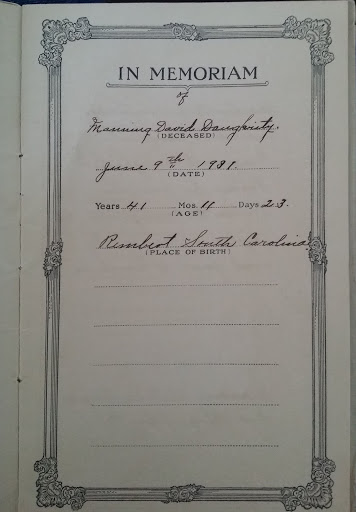 IN MEMORIAM
of
Manning David Daughrity.
(DECEASED)
June 9th 1931.
(DATE)
Years 41 Mos. 11 Days 23.
(AGE)
Rembert South Carolina
(PLACE OF BIRTH)